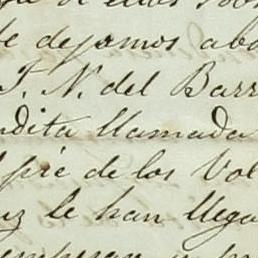 de dejamos aba
T. N. del Barr
ndita llamada
l pié de los Vol
uz le han llega